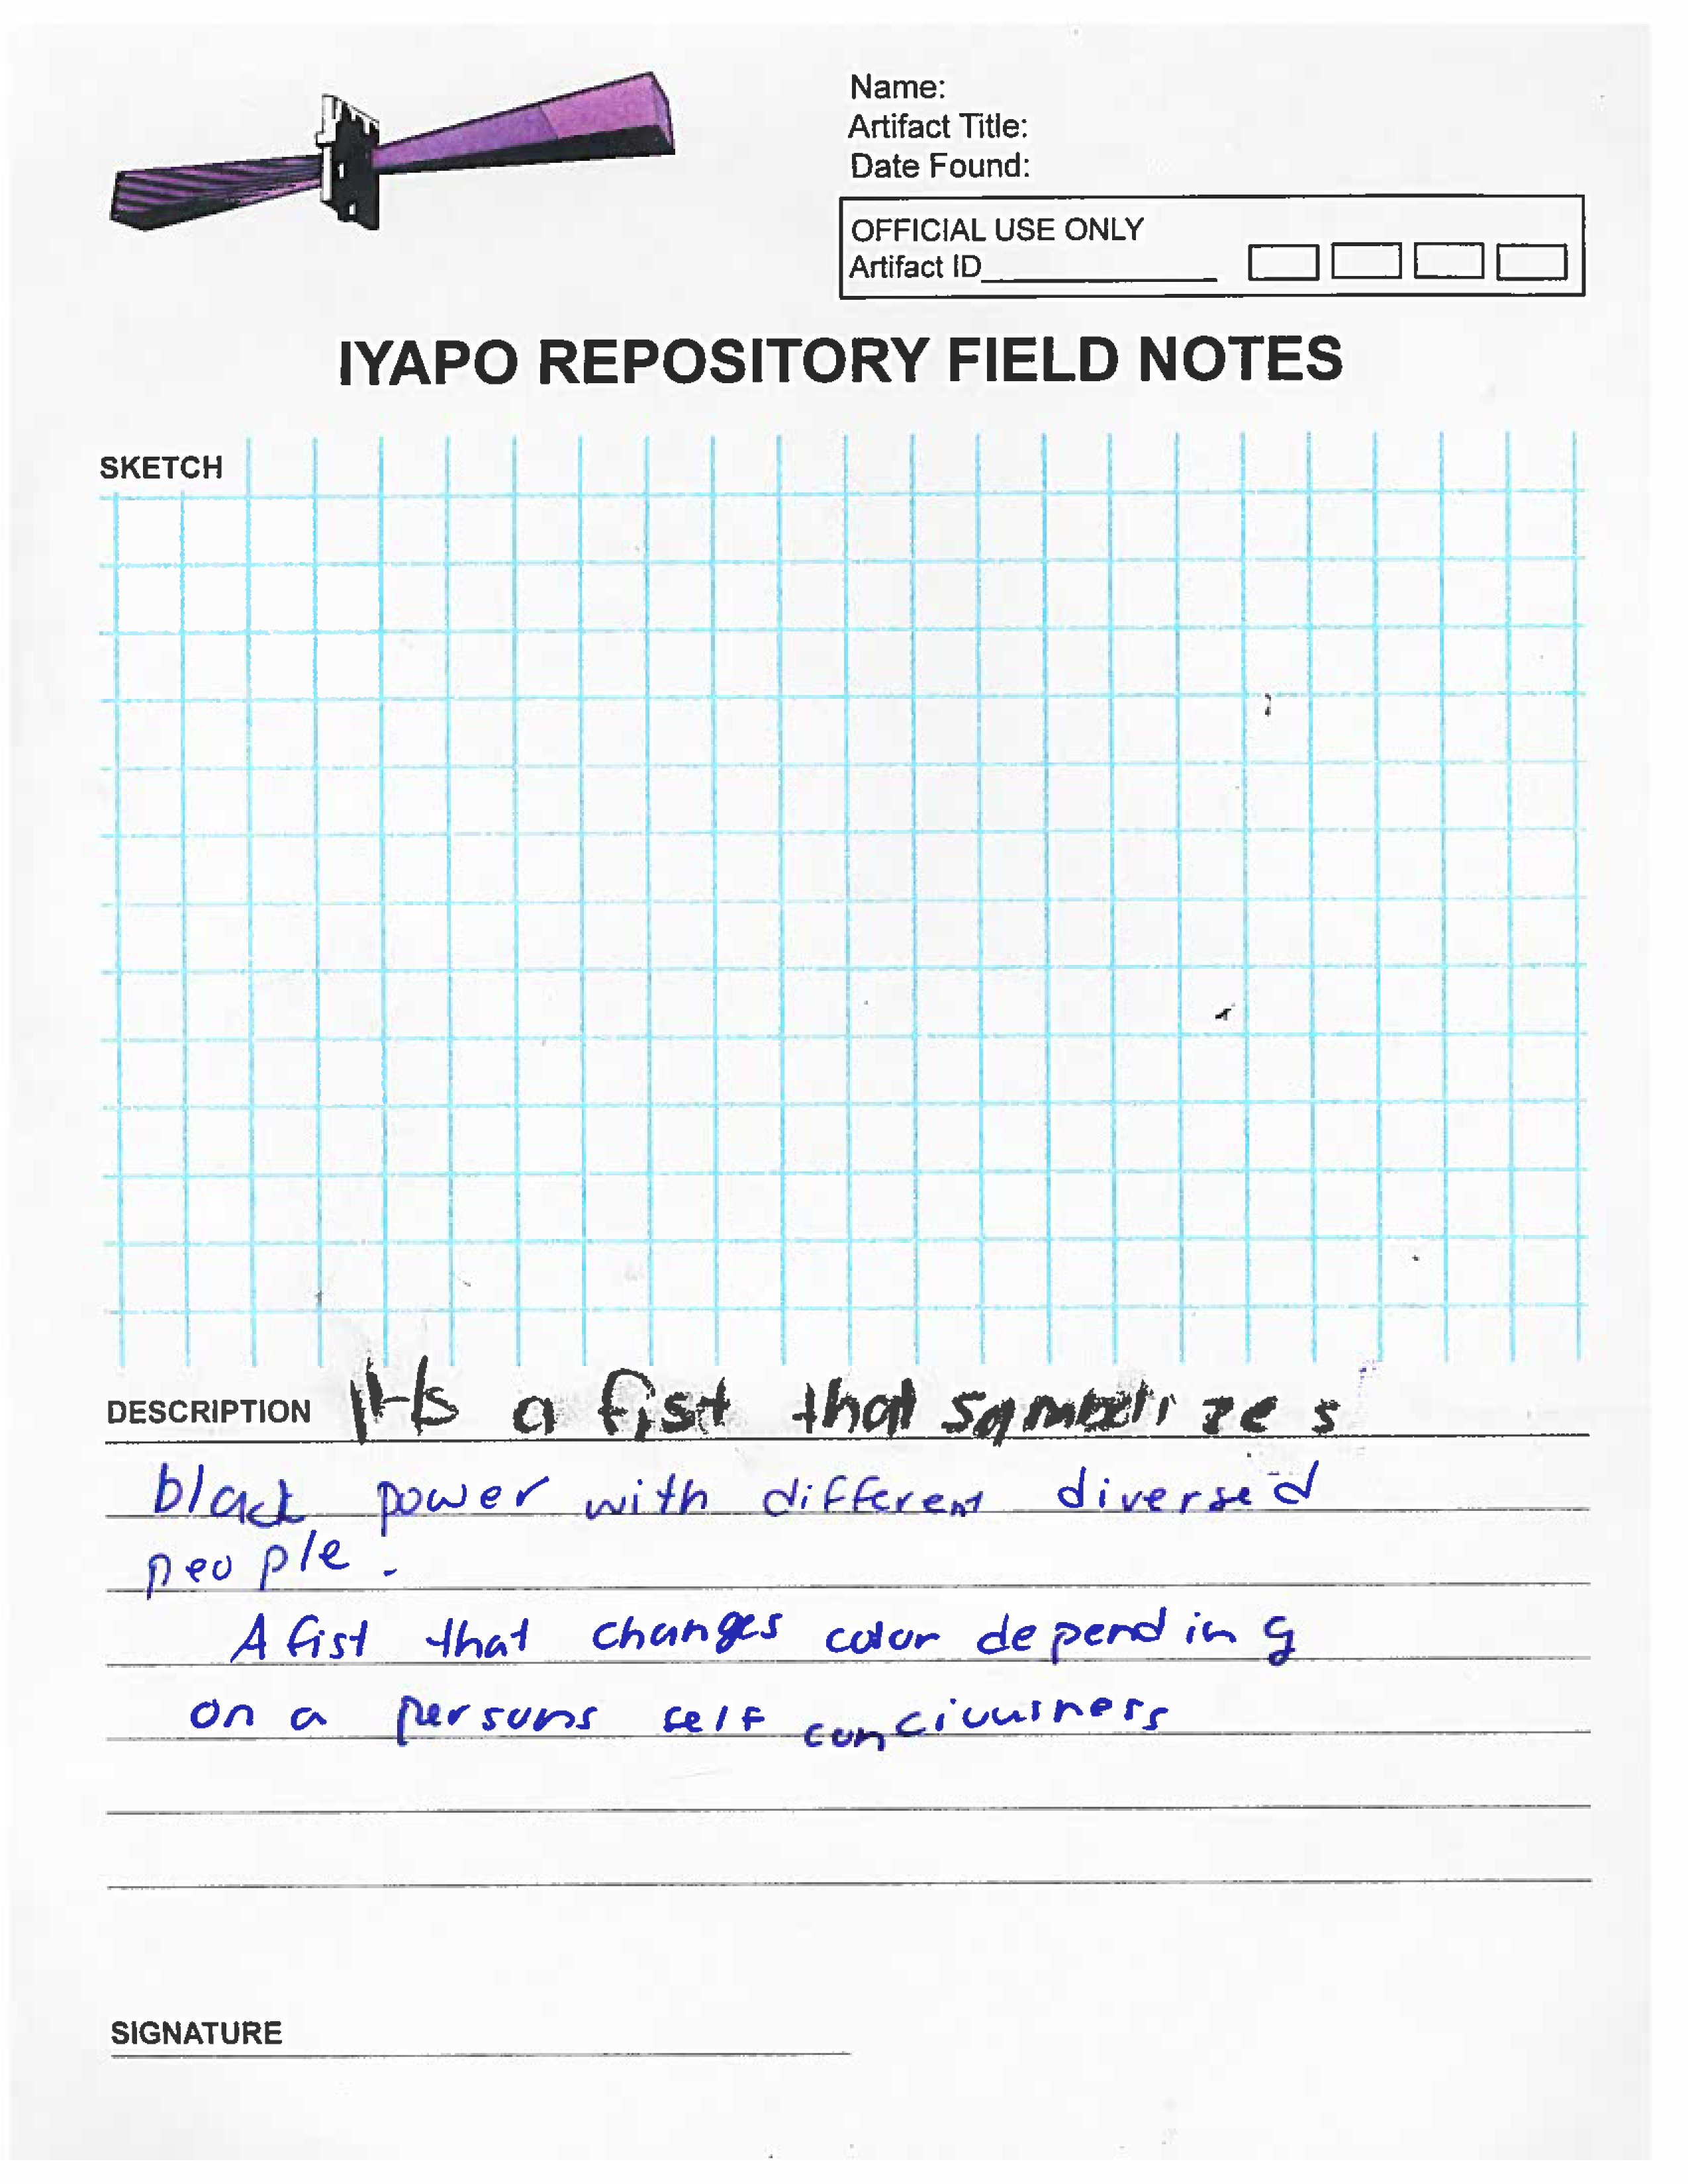 Name:
Artifact Title:
Date Found:
OFFICIAL USE ONLY
Artifact ID
IYAPO REPOSITORY FIELD NOTES
SKETCH
DESCRIPTION It's a fist that symbolizes
black power with different diversed
people.
A fist that changes color depending
on a persons self conciousness
SIGNATURE